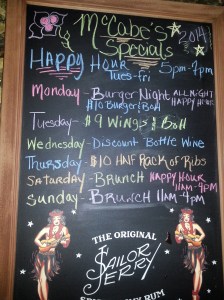 McCabe's
Specials
2014
Happy Hour
Tues-fri 5pm-7pm
Monday - Burger Night All Night
Happy Hour
$10 Burger & Ball
Tuesday - $9 Wings & Ball
Wednesday - Discount Bottle Wine
Thursday - $10 Half Rack of Ribs
Saturday - Brunch Happy Hour
11am-9pm
Sunday - Brunch 11am-4pm
THE ORIGINAL
SAILOR
JERRY
RUM